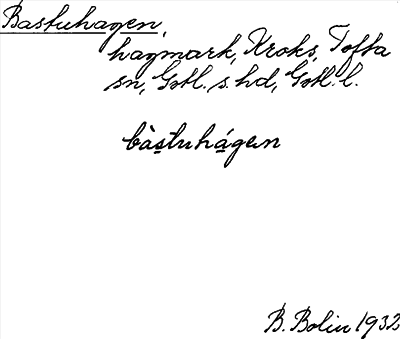 Bastuhagen,
hagmark, Kroks, Tofta
sn, Gotl. s. hd, Gotl. l.
bàstuhágen
B. Bolin 1932